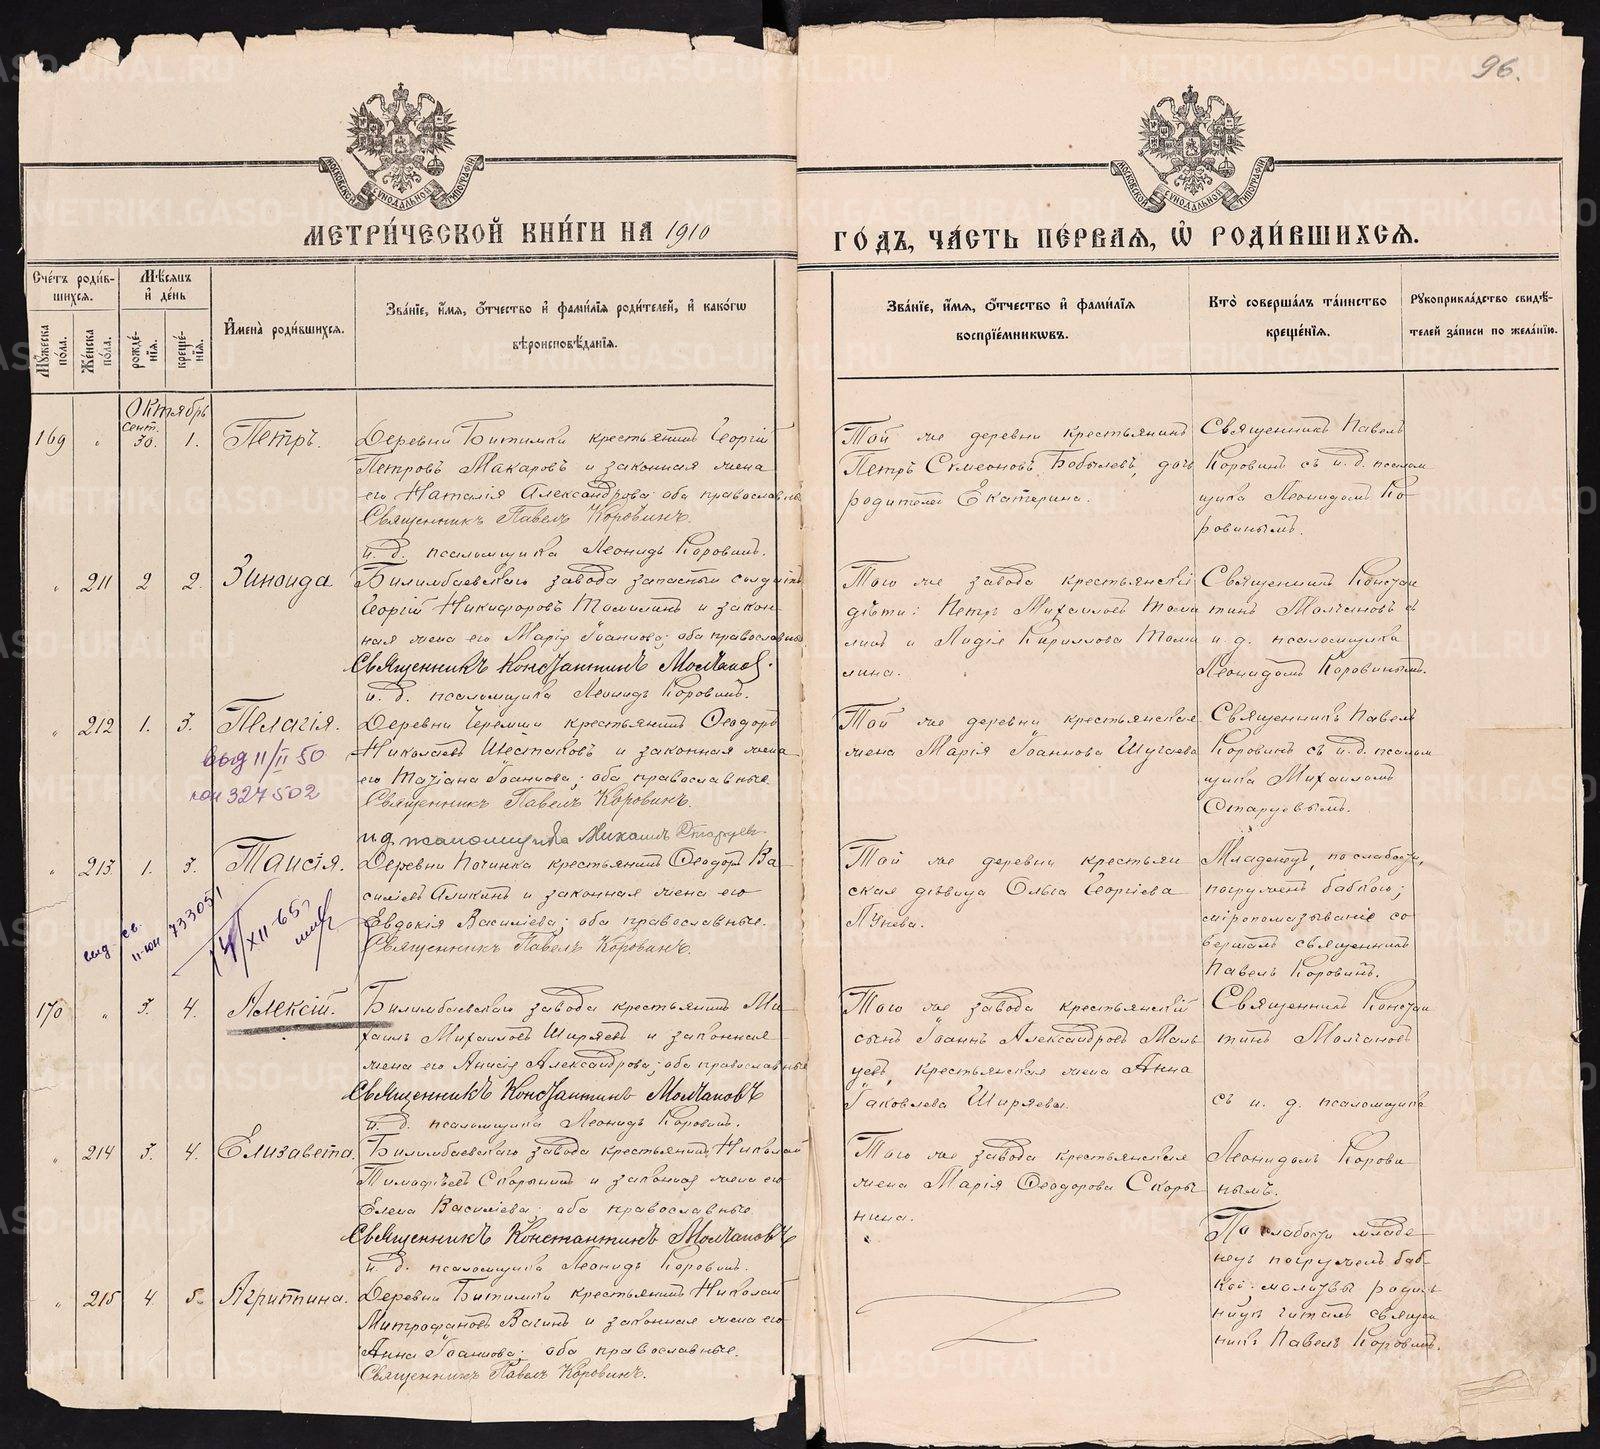 METRIKI.GASO-URAL.RU
96.
МОСКОВСКОЙ СУНОДАЛЬНОЙ ТИПОГРАФІИ
МОСКОВСКОЙ СУНОДАЛЬНОЙ ТИПОГРАФІИ
МЕТРИ́ЧЕСКОЙ КНИ́ГИ НА 1910
ГО́ДЪ, ЧА́СТЬ ПЕ́РВАЯ, Ѡ҆ РОДИ́ВШИХСѦ.
Сче́тъ роди́в-
шихсѧ.
Мꙋ́жеска по́ла.
Же́нска по́ла.
Мѣ́сѧцъ
и҆ де́нь
рожде́-
нїѧ.
креще́-
нїѧ.
И҆мена̀ роди́вшихсѧ.
Зва́нїе, и҆́мѧ, ѻ҆́тчество и҆ фами́лїѧ роди́телей, и҆ како́гѡ
вѣроисповѣ́данїѧ.
Зва́нїе, и҆́мѧ, ѻ҆́тчество и҆ фами́лїѧ
воспрїе́мникѡвъ.
Кто̀ соверша́лъ та́инство
креще́нїѧ.
Рꙋкоприкла́дство свидѣ́-
телей за́писи по жела́нїю.
Октябрь
169 " Сент. 30. 1. Петръ.
Деревни Битимки крестьянинъ Георгій
Петровъ Макаровъ и законная жена
его Наталія Александрова; оба православные.
Священникъ Павелъ Коровинъ.
и. д. псаломщика Леонидъ Коровинъ.
Той же деревни крестьянинъ
Петръ Симеоновъ Бобылевъ, дочь
родителей Екатерина.
Священникъ Павелъ
Коровинъ съ и. д. псалом
щика Леонидомъ Ко-
ровинымъ.
" 211 2 2. Зиноида
Билимбаевскаго завода запасный солдатъ
Георгій Никифоровъ Томилинъ и закон-
ная жена его Марія Іоаннова; оба православные
Священникъ Константинъ Молчановъ.
и. д. псаломщика Леонидъ Коровинъ.
Того же завода крестьянскіе
дѣти: Петръ Михаиловъ Томи
линъ и Лидія Кириллова Томи
лина.
Священникъ Констан
тинъ Молчановъ съ
и. д. псаломщика
Леонидомъ Коровинымъ.
" 212 1. 3. Пелагія.
выд 11/II 50
327502
Деревни Черемши крестьянинъ Ѳеодоръ
Николаевъ Шестаковъ и законная жена
его Татіана Іоаннова; оба православные.
Священникъ Павелъ Коровинъ.
и.д. псаломщика Михаилъ Старцевъ
Той же деревни крестьянская
жена Марія Іоаннова Шугаева
Священникъ Павелъ
Коровинъ съ и. д. псалом
щика Михаиломъ
Старцевымъ.
" 213 1. 3. Таисія.
выд. св.
II-юн 733051
14/XII-65г
Деревни Починка крестьянинъ Ѳеодоръ Ва-
силіевъ Аликинъ и законная жена его
Евдокія Василіева; оба православные.
Священникъ Павелъ Коровинъ.
Той же деревни крестьян
ская дѣвица Ольга Георгіева
Младенецъ, по слабости,
погруженъ бабкою;
миропомазываніе со
вершалъ священникъ
Павелъ Коровинъ.
170 " 3. 4. Алексій.
Билимбаевскаго завода крестьянинъ Ми-
хаилъ Михаиловъ Ширяевъ и законная
жена его Анисія Александрова; оба православные
Священникъ Константинъ Молчановъ
и. д. псаломщика Леонидъ Коровинъ.
Того же завода крестьянскій
сынъ Іоаннъ Александровъ Маль
цевъ, крестьянская жена Анна
Іаковлева Ширяевы.
Священникъ Констан
тинъ Молчановъ
съ и. д. псаломщика
" 214 3. 4. Елизавета.
Билимбаевскаго завода крестьянинъ Николай
Тимофѣевъ Скорынинъ и законная жена его
Елена Василіева; оба православные.
Священникъ Константинъ Молчановъ
и. д. псаломщика Леонидъ Коровинъ.
Того же завода крестьянская
жена Марія Ѳеодорова Скоры
нина.
Леонидомъ Корови-
нымъ.
" 215 4. 5. Агриппина.
Деревни Битимки крестьянинъ Николай
Митрофановъ Вагинъ и законная жена его
Анна Іоаннова; оба православные.
Священникъ Павелъ Коровинъ.
По слабости младе-
нецъ погруженъ баб-
кой; молитвы родиль
ницѣ читалъ священ
никъ Павелъ Коровинъ.